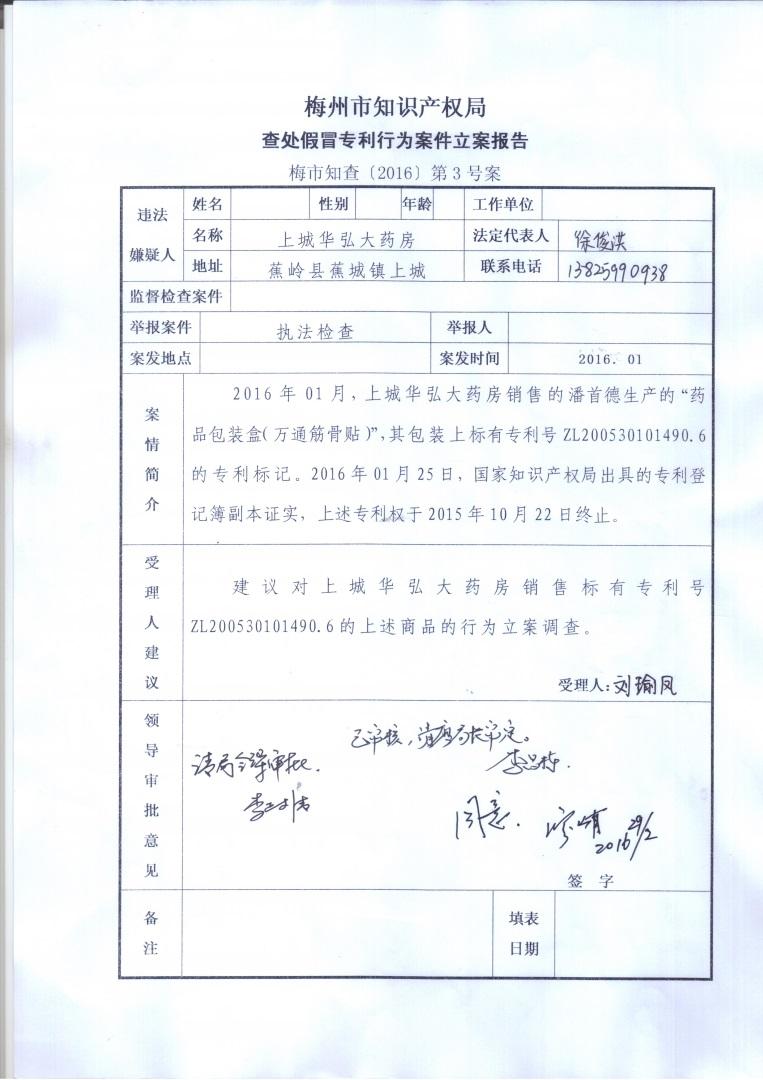 梅州市知识产权局
查处假冒专利行为案件立案报告
梅市知查〔2016〕第3号案
违法嫌疑人 姓名 性别 年龄 工作单位
名称 上城华弘大药房 法定代表人 徐俊洪
地址 蕉岭县蕉城镇上城 联系电话 13825990938
监督检查案件
举报案件 执法检查 举报人
案发地点 案发时间 2016. 01
案情简介
2016年01月,上城华弘大药房销售的潘首德生产的“药
品包装盒(万通筋骨贴)”,其包装上标有专利号ZL200530101490.6
的专利标记。2016年01月25日,国家知识产权局出具的专利登
记簿副本证实，上述专利权于2015年10月22日终止。
受理人建议
建议对上城华弘大药房销售标有专利号
ZL200530101490.6的上述商品的行为立案调查。
受理人:刘瑜凤
领导审批意见
已审核,请廖局长审定。
请局领导审批.
同意. 2016 29/2
签字
备注 填表日期